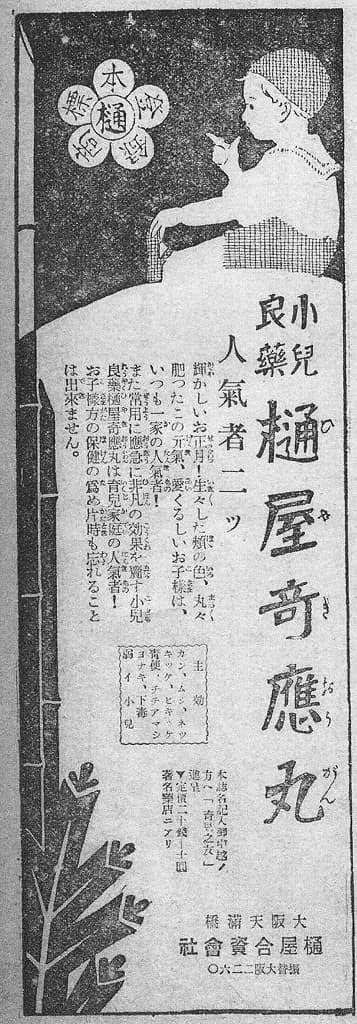 小兒良藥
樋屋奇應丸
ひやきおうがん
人氣者二ッ
輝かしいお正月！生々した頬の色、丸々
肥つたこの元氣、愛くるしいお子樣は、
いつも一家の人氣者！
また常用に應急に非凡の効果を齎す小兒
良藥樋屋奇應丸は育兒家庭の人氣者！
お子樣方の保健の爲め片時も忘れること
は出來ません。
主効
カン、ムシ、ネツ
キツケ、ヒキツケ
靑便、チチアマシ
ヨナキ、下毒
弱イ小兒
本誌名記入御申越ノ
方へ「育兒之友」
進呈
▼定價二十錢—十圓
著名藥店ニアリ
大阪天滿橋
樋屋合資會社
振替大阪二二六〇
登錄商標
本
樋